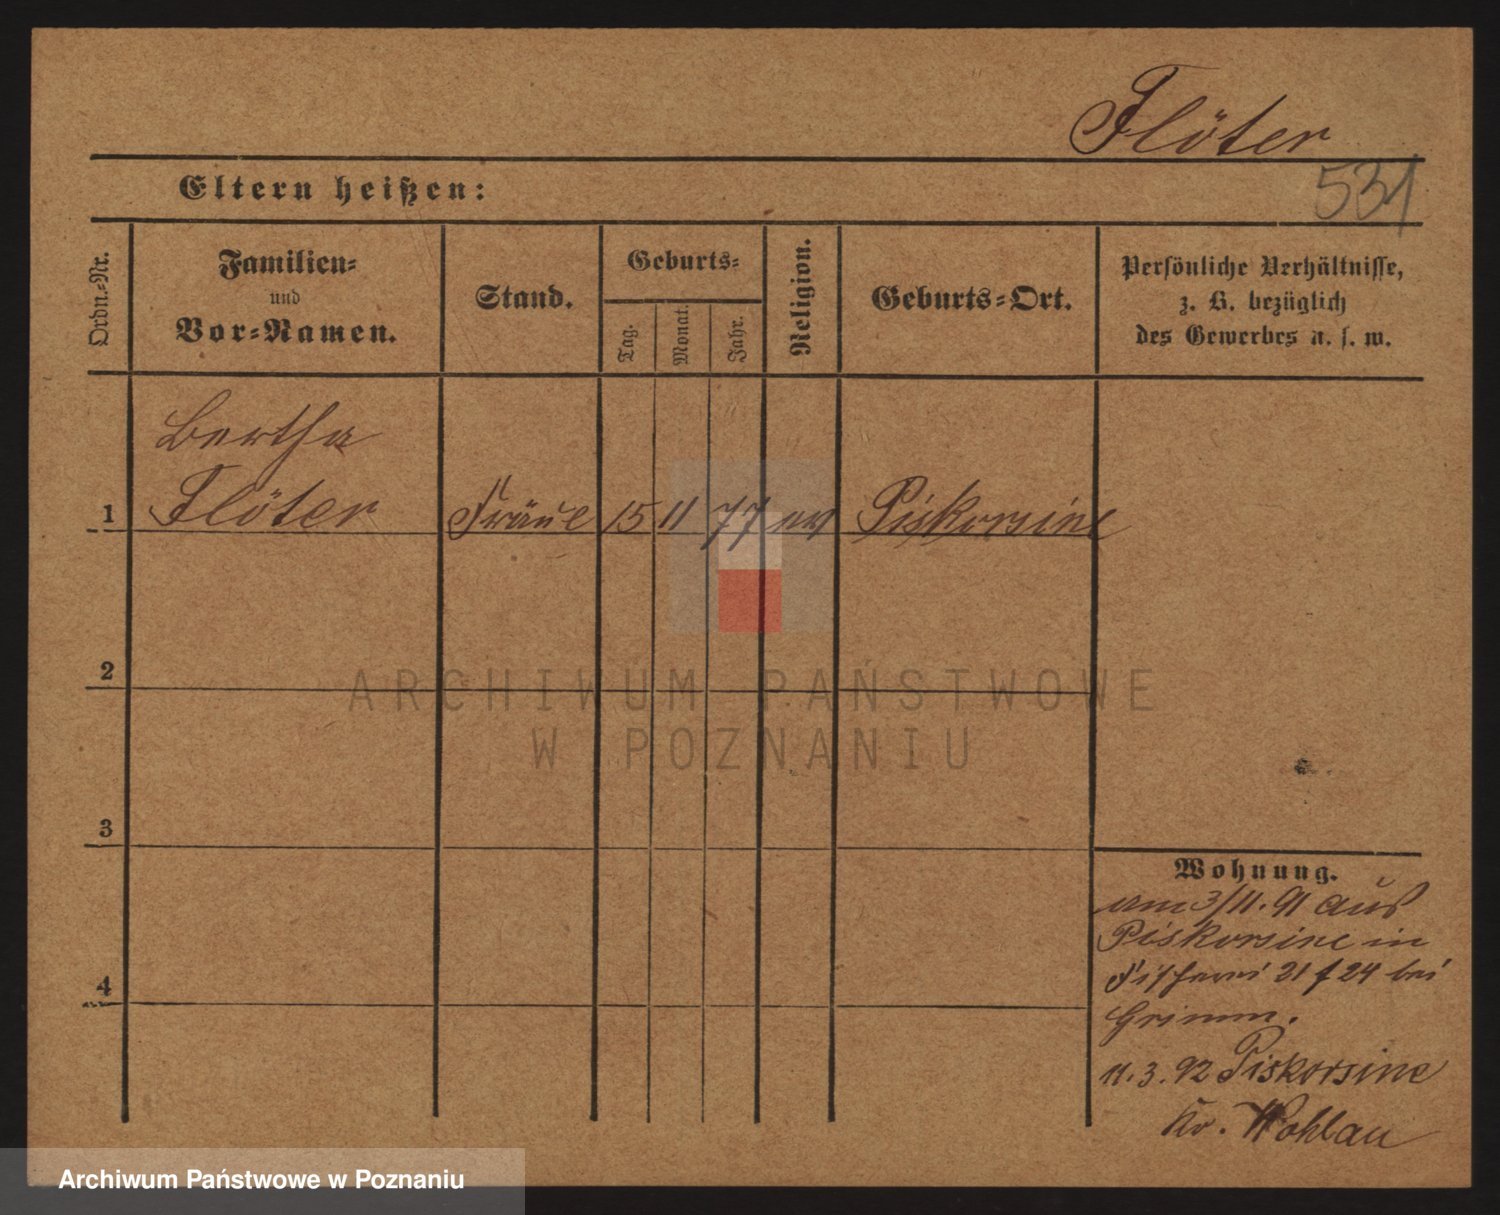 Flöter
531
Eltern heißen:
Ordn.-Nr.
Familien-
und
Vor-Namen.
Stand.
Geburts-
Tag.
Monat.
Jahr.
Religion.
Geburts-Ort.
Persönliche Verhältnisse,
z. B. bezüglich
des Gewerbes u. s. w.
Bertha
1 Flöter Fräul 15 11 77 ev Piskorsine
2
3
4
Wohnung.
am 3/11. 91 aus
Piskorsine in
Fischerei 21/24 bei
Grimm.
11. 3. 92 Piskorsine
Kr. Wohlau
ARCHIWUM PAŃSTWOWE
W POZNANIU
Archiwum Państwowe w Poznaniu